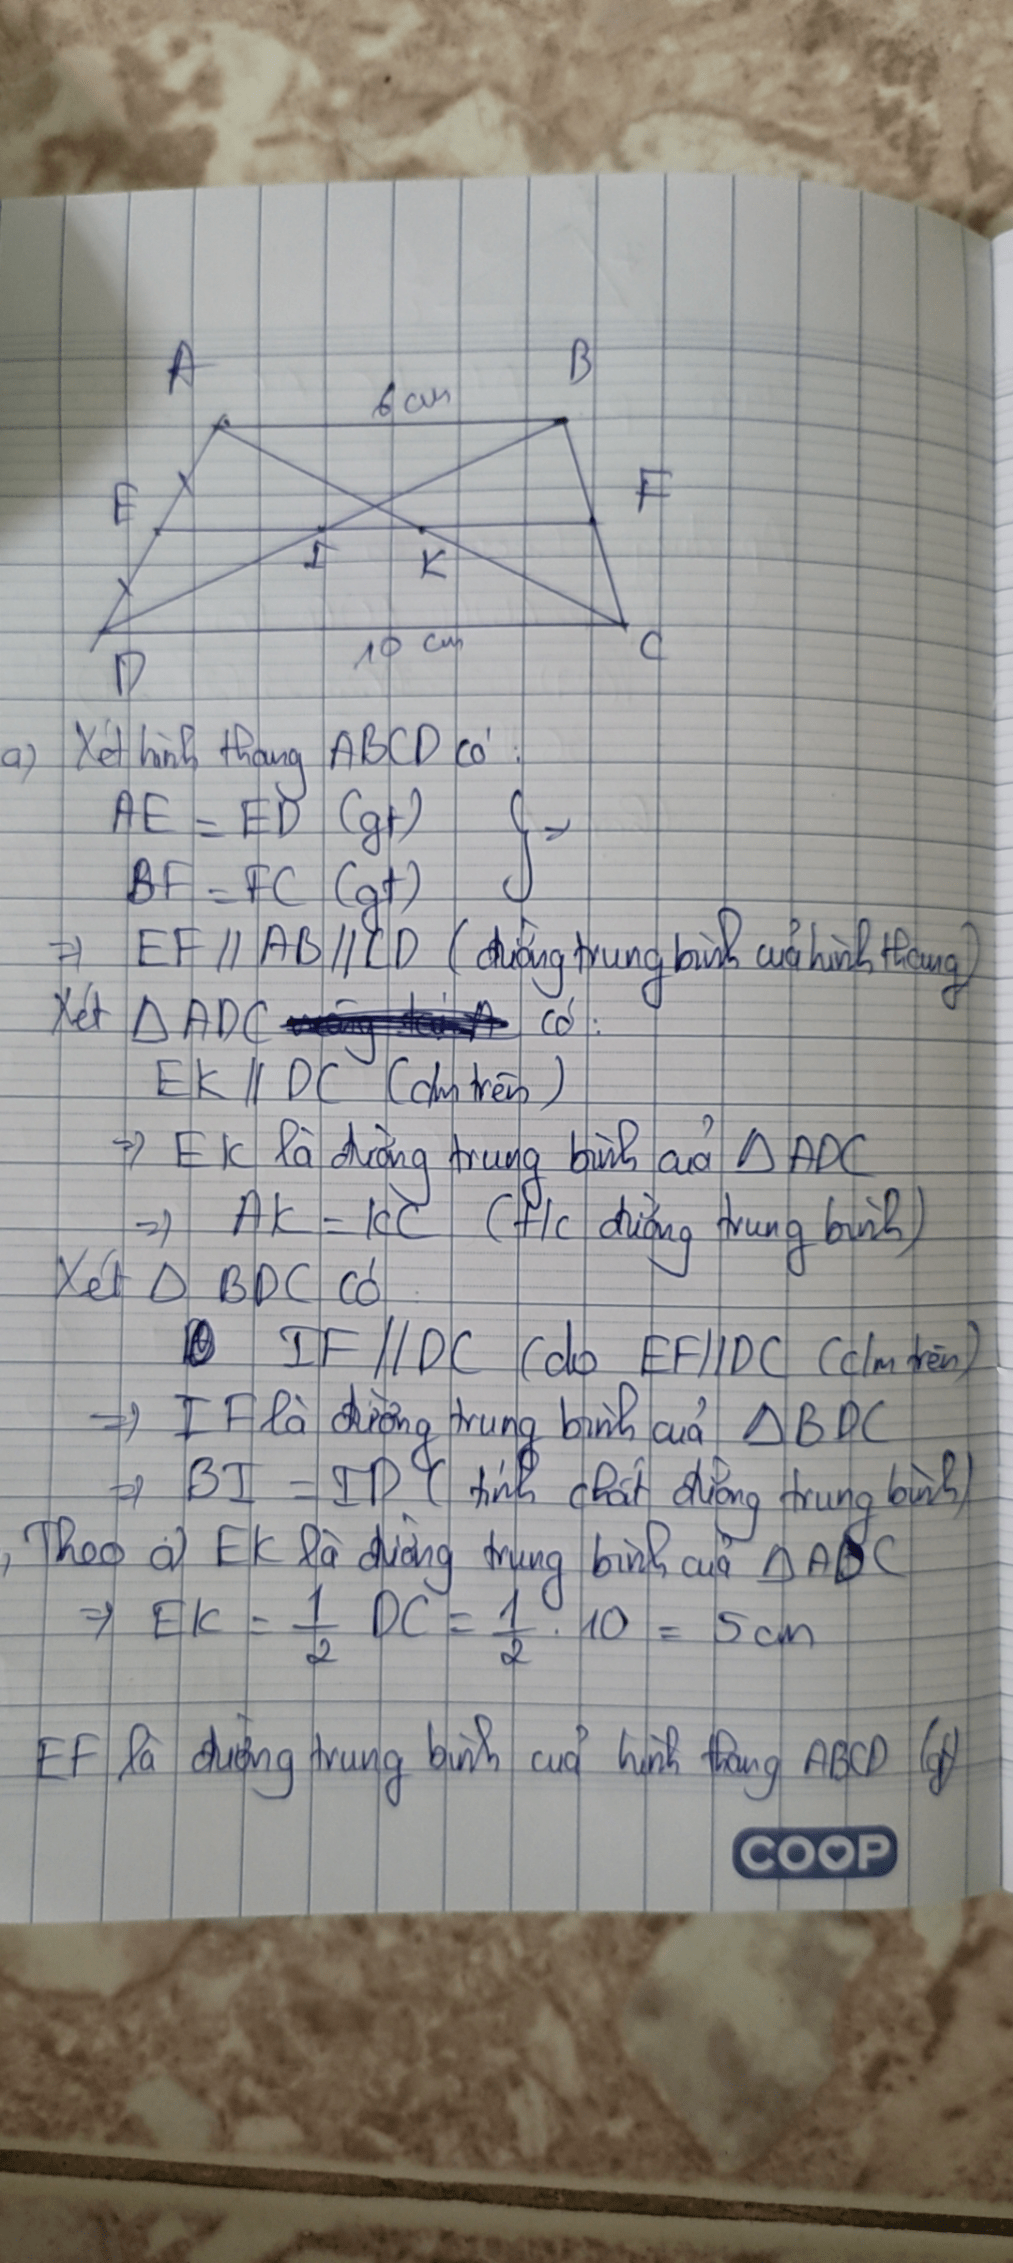 A
B
6 cm
E
F
I
K
D
10 cm
C
a) Xét hình thang ABCD có:
AE = ED (gt)
BF = FC (gt) } =>
=> EF // AB // CD (đường trung bình của hình thang)
Xét Δ ADC có:
EK // DC (cm trên)
=> EK là đường trung bình của Δ ADC
=> AK = KC (t/c đường trung bình)
Xét Δ BDC có
IF // DC (do EF // DC (cm trên)
=> IF là đường trung bình của Δ BDC
=> BI = ID (tính chất đường trung bình)
, Theo a) EK là đường trung bình của Δ ADC
=> EK = 1/2 DC = 1/2 . 10 = 5 cm
EF là đường trung bình của hình thang ABCD (gt)
COOP